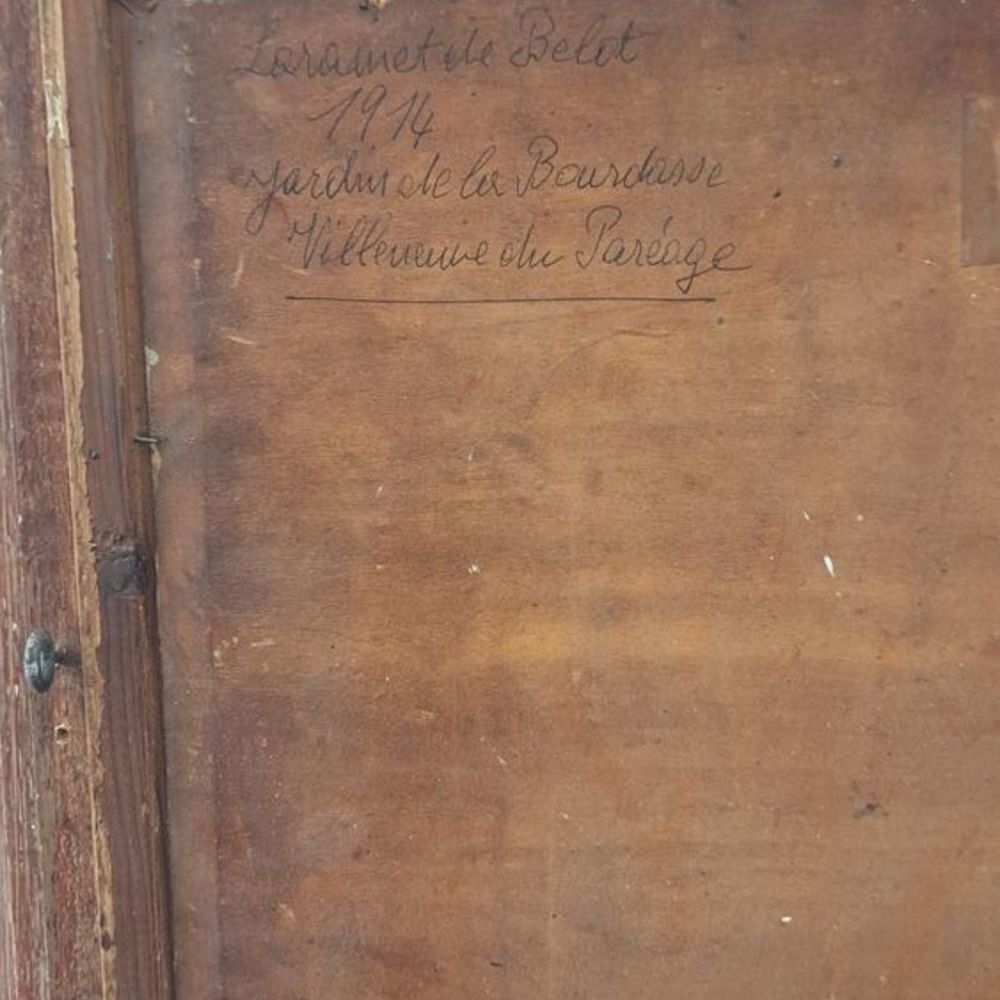 Laramet de Belot
1914
Jardin de la Bourdasse
Villeneuve du Paréage